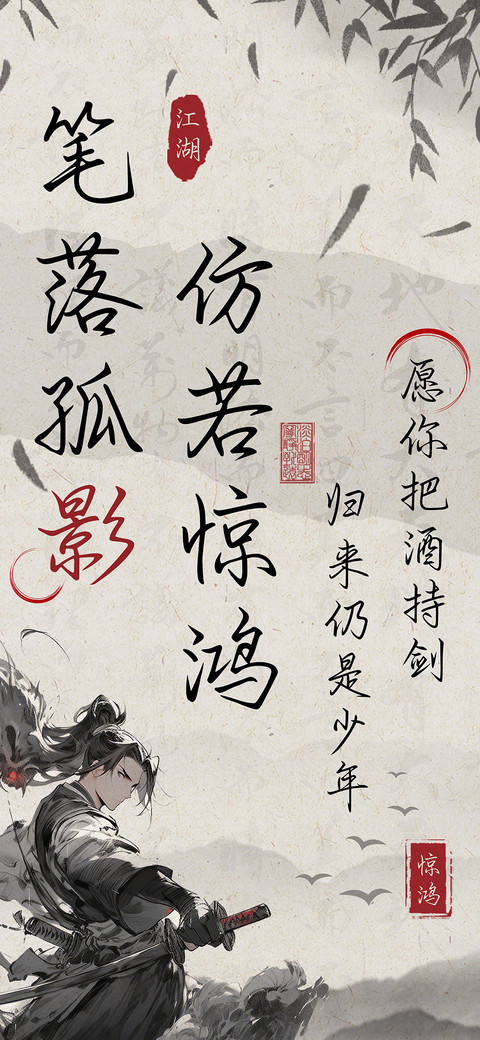 笔落孤影
江湖
仿若惊鸿
愿你把酒持剑
归来仍是少年
惊鸿